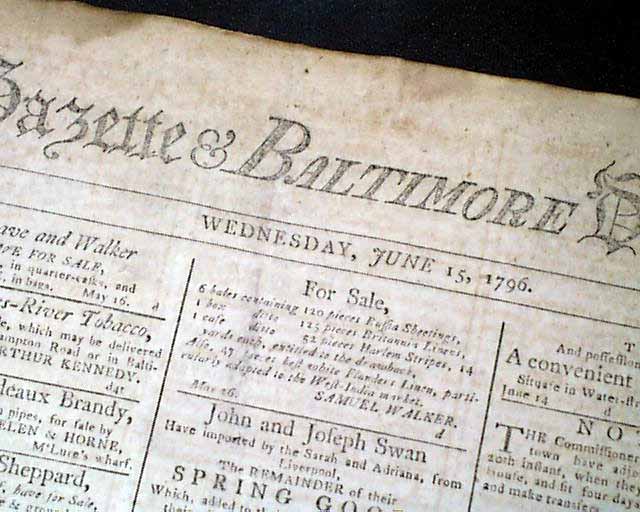 Gazette & BALTIMORE D
WEDNESDAY, JUNE 15, 1796.
ave and Walker
FOR SALE,
in quarter-casks, and
in bags. May 16. d
s-River Tobacco,
e, which may be delivered
ampton Road or in Balti-
ARTHUR KENNEDY.
d4t
deaux Brandy,
pipes, for sale by
ELEN & HORNE,
M'Lure's wharf.
Sheppard,
have for Sale,
For Sale,
6 bales containing 120 pieces Russia Sheetings,
1 box ditto 125 pieces Britannia Linens,
1 case ditto 52 pieces Harlem Stripes, 14
yards each, entitled to the drawback,
Also, 47 pieces best white Flanders Linen, parti-
cularly adapted to the West-India market.
SAMUEL WALKER.
May 26. d
John and Joseph Swan
Have imported by the Sarah and Adriana, from
Liverpool,
The REMAINDER of their
SPRING GOO
Which, added to
T
And possession
A convenient
Situate in Water-st
June 14 d
NO
THE Commissioner
town have adj
20th instant, when the
house, and sit four days
and make transfers